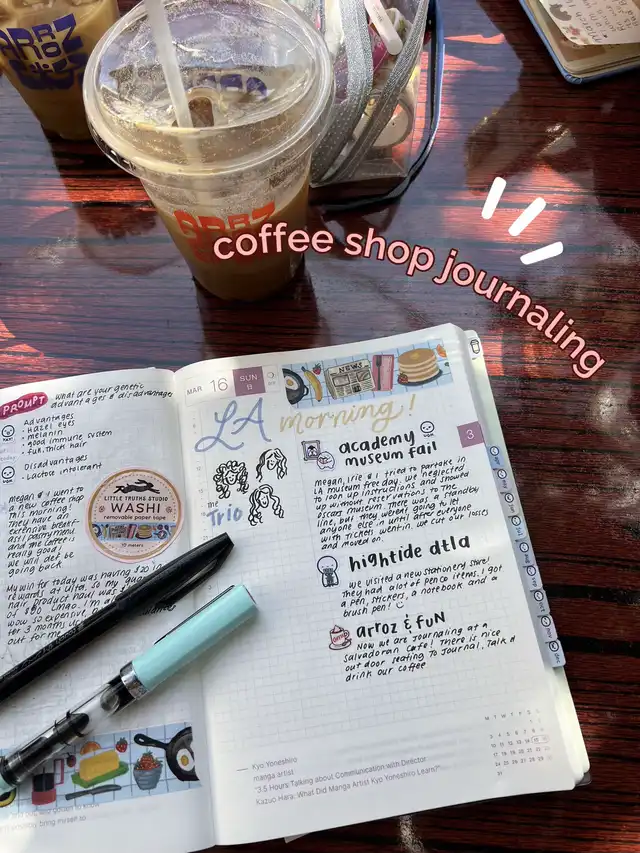 ARRZ
ARRZ
coffee shop journaling
PROMPT what are your genetic
advantages & disadvantages
Advantages
• Hazel eyes
• melanin
• good immune system
• full, thick hair
Disadvantages
• Lactose intolerant
megan & I went to
a new coffee shop
this morning!
They have an
and pastry menu
and the coffee is
really good!
we will def be
going back
My win for today was having $20 in
rewards at Ulta, so my
hair product haul was
of $80 Lmao.
wow so expensive
for 3 months
out for me
LITTLE TRUTHS STUDIO
WASHI
removable paper tape
10 meters
MAR 16 SUN
NEWS
LA morning!
the
Trio
3
academy
museum fail
megan, Irie & I tried to partake in
LA museum free day. we neglected
to look up instructions and showed
up without reservations to the
oscars museum. There was a standby
line, but they weren't going to let
anyone else in until after everyone
with tickets went in. we cut our losses
and moved on.
hightide dtla
we visited a new stationery store!
They had a lot of penco items. I got
a pen, stickers, a notebook and a
brush pen!
arroz & fun
Now we are journaling at a
Salvadoran cafe! There is nice
outdoor seating to journal, talk &
drink our coffee
Kyo Yoneshiro
manga artist
"3.5 Hours Talking about Communication with Director
Kazuo Hara: What Did Manga Artist Kyo Yoneshiro Learn?"
M T W T F S S